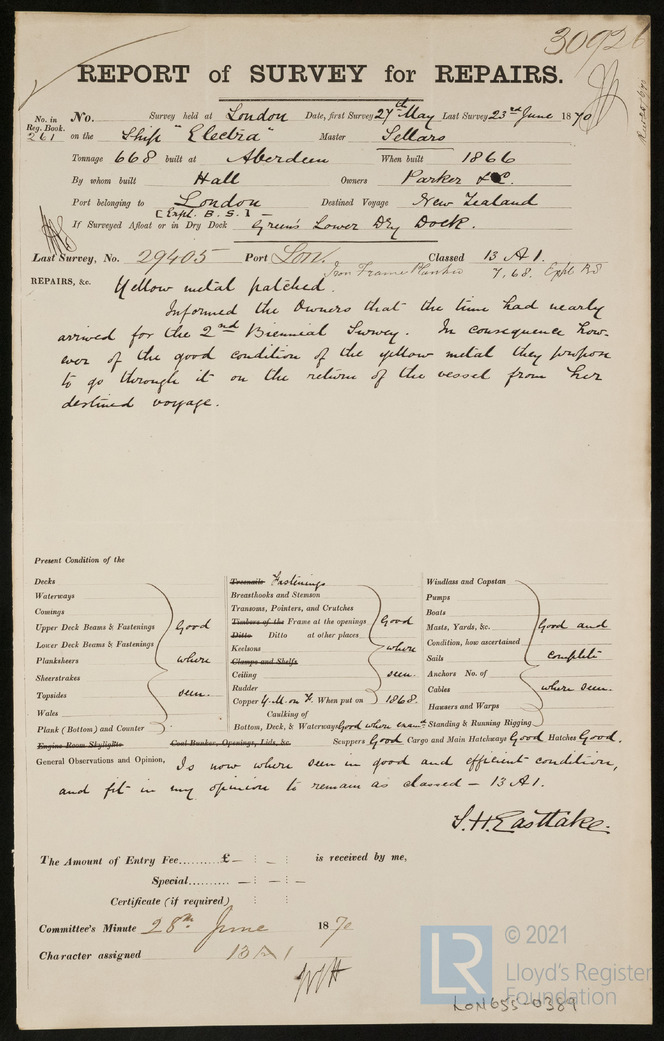 30926
REPORT of SURVEY for REPAIRS.
No. in Reg. Book. No. Survey held at London Date, first Survey 27th May Last Survey 23rd June 1870
261 on the Ship "Electra" Master Sellars
Tonnage 668 built at Aberdeen When built 1866
By whom built Hall Owners Parker & C.
Port belonging to London Destined Voyage New Zealand
[Expl. B.S.]
If Surveyed Afloat or in Dry Dock Green's Lower Dry Dock.
Last Survey, No. 29405 Port Lon. Classed 13 A 1.
Iron Frame Planked 7,68. Expl BS
REPAIRS, &c. Yellow metal patched.
Informed the Owners that the time had nearly
arrived for the 2nd Biennial Survey. In consequence how-
ever of the good condition of the yellow metal they propose
to go through it on the return of the vessel from her
destined voyage.
Present Condition of the
Decks
Waterways
Comings
Upper Deck Beams & Fastenings
Lower Deck Beams & Fastenings
Planksheers
Sheerstrakes
Topsides
Wales
Plank (Bottom) and Counter
Good
where
seen.
Engine Room Skylights Coal Bunker, Openings, Lids, &c.
Treenails Fastenings
Breasthooks and Stemson
Transoms, Pointers, and Crutches
Timbers of the Frame at the openings
Ditto Ditto at other places
Keelsons
Clamps and Shelfs
Ceiling
Rudder
Good
where
seen.
Copper Y.M. on F. When put on 1868.
Caulking of
Bottom, Deck, & Waterways Good where examd
Windlass and Capstan
Pumps
Boats
Masts, Yards, &c.
Condition, how ascertained
Sails
Anchors No. of
Cables
Hawsers and Warps
Standing & Running Rigging
Good and
complete
where seen.
Scuppers Good Cargo and Main Hatchways Good Hatches Good.
General Observations and Opinion, Is now where seen in good and efficient condition,
and fit in my opinion to remain as classed – 13 A 1.
S.H. Easttake.
The Amount of Entry Fee..........£ – : – : is received by me,
Special.......... – : – : –
Certificate (if required)
Committee's Minute 28th June 1870
Character assigned 13 A 1
© 2021
LR
Lloyd's Register
Foundation
LON655-0389